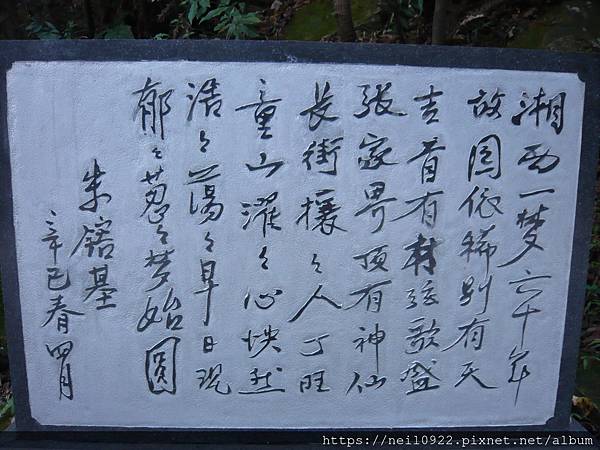 湘西一梦六十年
故园依稀别有天
吉首有材弦歌盛
张家界顶有神仙
长街攘々人丁旺
童山濯々心怏然
浩々荡々早日现
郁々葱々梦始圆
朱镕基
辛巳春四月
https://neil0922.pixnet.net/album